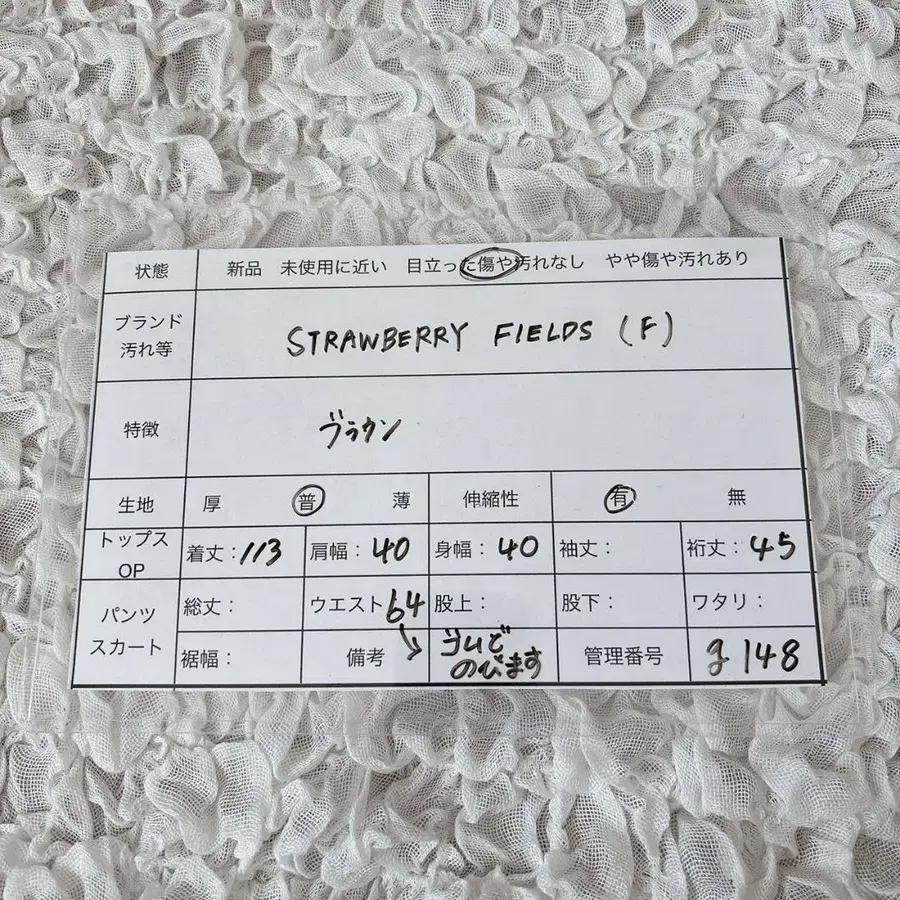 状態 新品 未使用に近い 目立った傷や汚れなし やや傷や汚れあり
ブランド
汚れ等
STRAWBERRY FIELDS (F)
特徴 ブラウン
生地 厚 普 薄 伸縮性 有 無
トップス
OP
着丈:113 肩幅:40 身幅:40 袖丈: 裄丈:45
パンツ
スカート
総丈: ウエスト64 股上: 股下: ワタリ:
裾幅: 備考 ゴムで
のびます
管理番号 g148